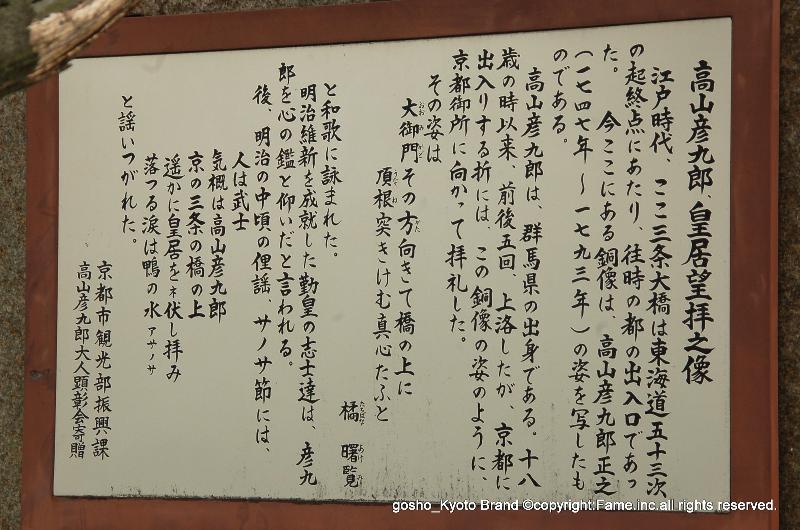 高山彦九郎、皇居望拝之像
江戸時代、ここ三条大橋は東海道五十三次
の起終点にあたり、往時の都の出入口であっ
た。　今ここにある銅像は、高山彦九郎正之
（一七四七年～一七九三年）の姿を写したも
のである。
高山彦九郎は、群馬県の出身である。十八
歳の時以来、前後五回、上洛したが、京都に
出入りする折には、この銅像の姿のように、
京都御所に向かって拝礼した。
その姿は
大御門その方向きて橋の上に
頂根突きけむ真心たふと
橘　曙覧
と和歌に詠まれた。
明治維新を成就した勤皇の志士達は、彦九
郎を心の鑑と仰いだと言われる。
後、明治の中頃の俚謡、サノサ節には、
人は武士
気概は高山彦九郎
京の三条の橋の上
遥かに皇居をネ伏し拝み
落つる涙は鴨の水 アサノサ
と謡いつがれた。
京都市観光部振興課
高山彦九郎大人顕彰会寄贈
gosho_Kyoto Brand ©copyright.Fame.inc.all rights reserved.